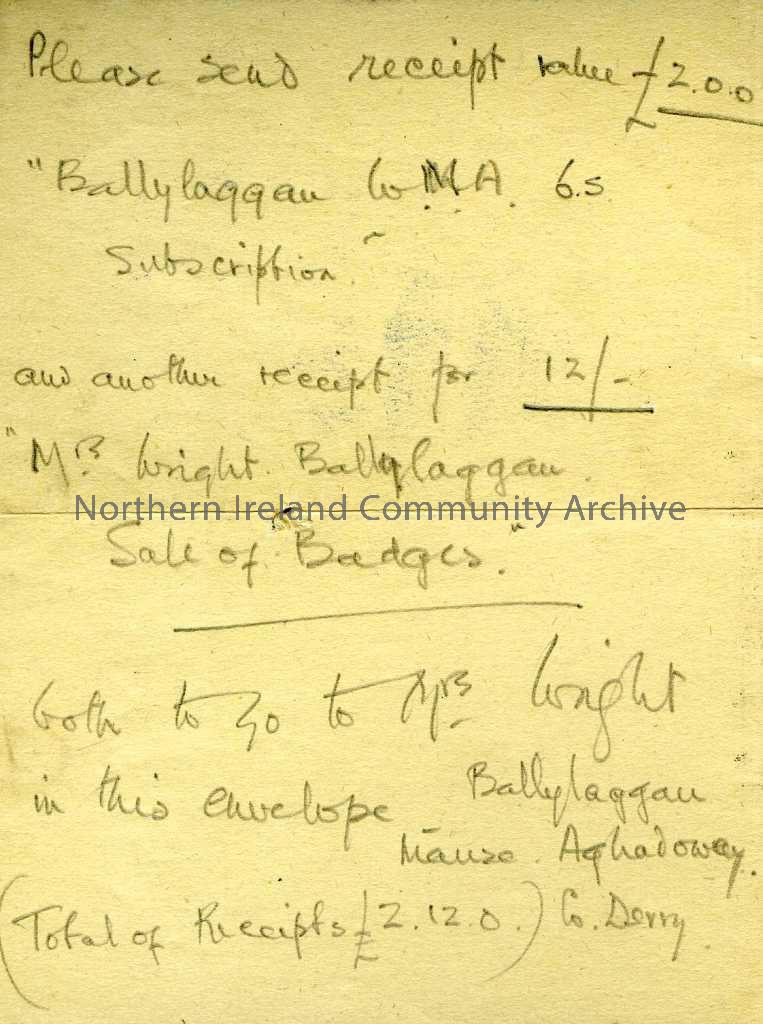 Please send receipt value £2.0.0
"Ballylaggan W.M.A. 6.s
Subscription."
and another receipt for 12/-
"Mrs Wright. Ballylaggan.
Northern Ireland Community Archive
Sale of Badges."
both to go to Mrs Wright
in this envelope Ballylaggan
Manse. Aghadowey.
(Total of Receipts £2.12.0.) Co. Derry